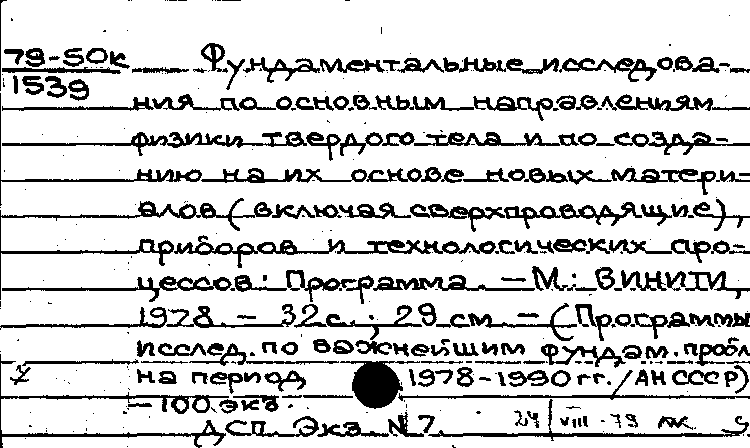 79-50к
1539
Фундаментальные исследова-
ния по основным направлениям
физики твердого тела и по созда-
нию на их основе новых матери-
алов (включая сверхпроводящие),
приборов и технологических про-
цессов: Программа. — М.: ВИНИТИ,
1978. — 32с.; 29 см — (Программы
исслед. по важнейшим фундам. пробл
на период 1978-1990 гг. / АН СССР)
— 100 экз.
ДСП. Экз. N 7. 24 | VIII - 79